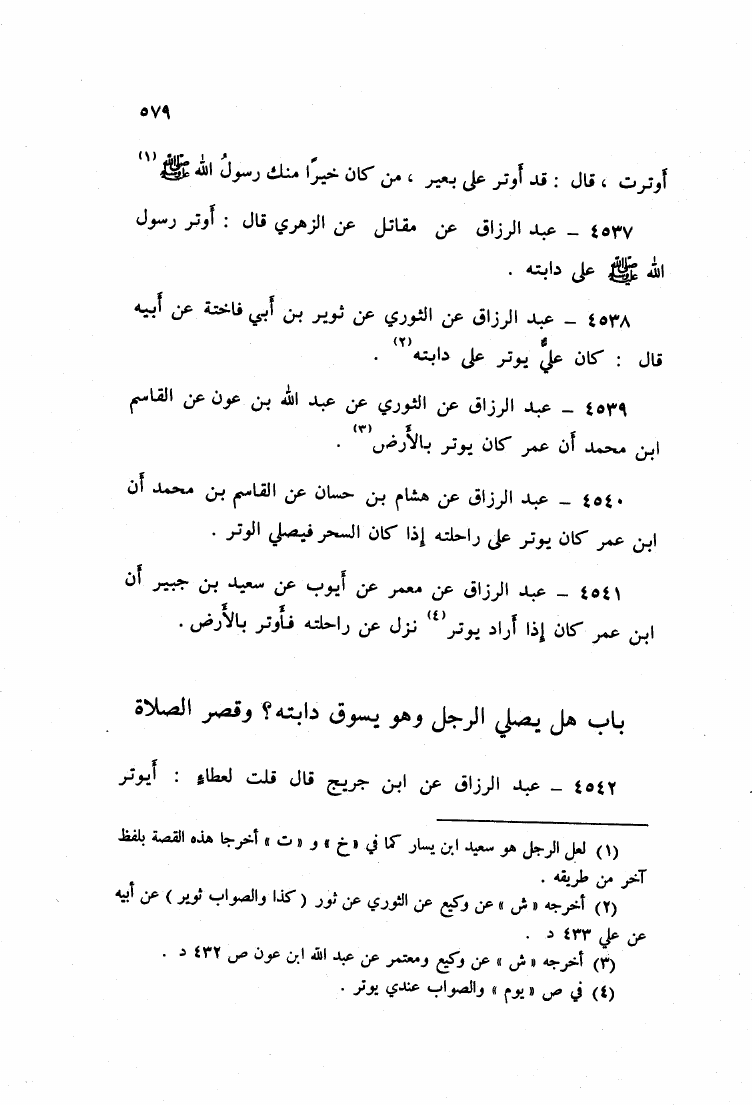 ٥٧٩
أوترت ، قال : قد أوتر على بعير ، من كان خيرًا منك رسولُ الله ﷺ(١)
٤٥٣٧ – عبد الرزاق عن مقاتل عن الزهري قال : أوتر رسول
الله ﷺ على دابته .
٤٥٣٨ – عبد الرزاق عن الثوري عن ثوير بن أبي فاختة عن أبيه
قال : كان عليٌّ يوتر على دابته(٢) .
٤٥٣٩ – عبد الرزاق عن الثوري عن عبد الله بن عون عن القاسم
ابن محمد أن عمر كان يوتر بالأرض(٣) .
٤٥٤٠ – عبد الرزاق عن هشام بن حسان عن القاسم بن محمد أن
ابن عمر كان يوتر على راحلته إذا كان السحر فيصلي الوتر .
٤٥٤١ – عبد الرزاق عن معمر عن أيوب عن سعيد بن جبير أن
ابن عمر كان إذا أراد يوتر(٤) نزل عن راحلته فأوتر بالأرض .
باب هل يصلي الرجل وهو يسوق دابته؟ وقصر الصلاة
٤٥٤٢ – عبد الرزاق عن ابن جريج قال قلت لعطاءٍ : أيوتر
(١) لعل الرجل هو سعيد ابن يسار كما في «خ» و «ت» أخرجا هذه القصة بلفظ
آخر من طريقه .
(٢) أخرجه «ش» عن وكيع عن الثوري عن ثور ( كذا والصواب ثوير ) عن أبيه
عن علي ٤٣٣ د .
(٣) أخرجه «ش» عن وكيع ومعتمر عن عبد الله ابن عون ص ٤٣٢ د .
(٤) في ص «يوم» والصواب عندي يوتر .